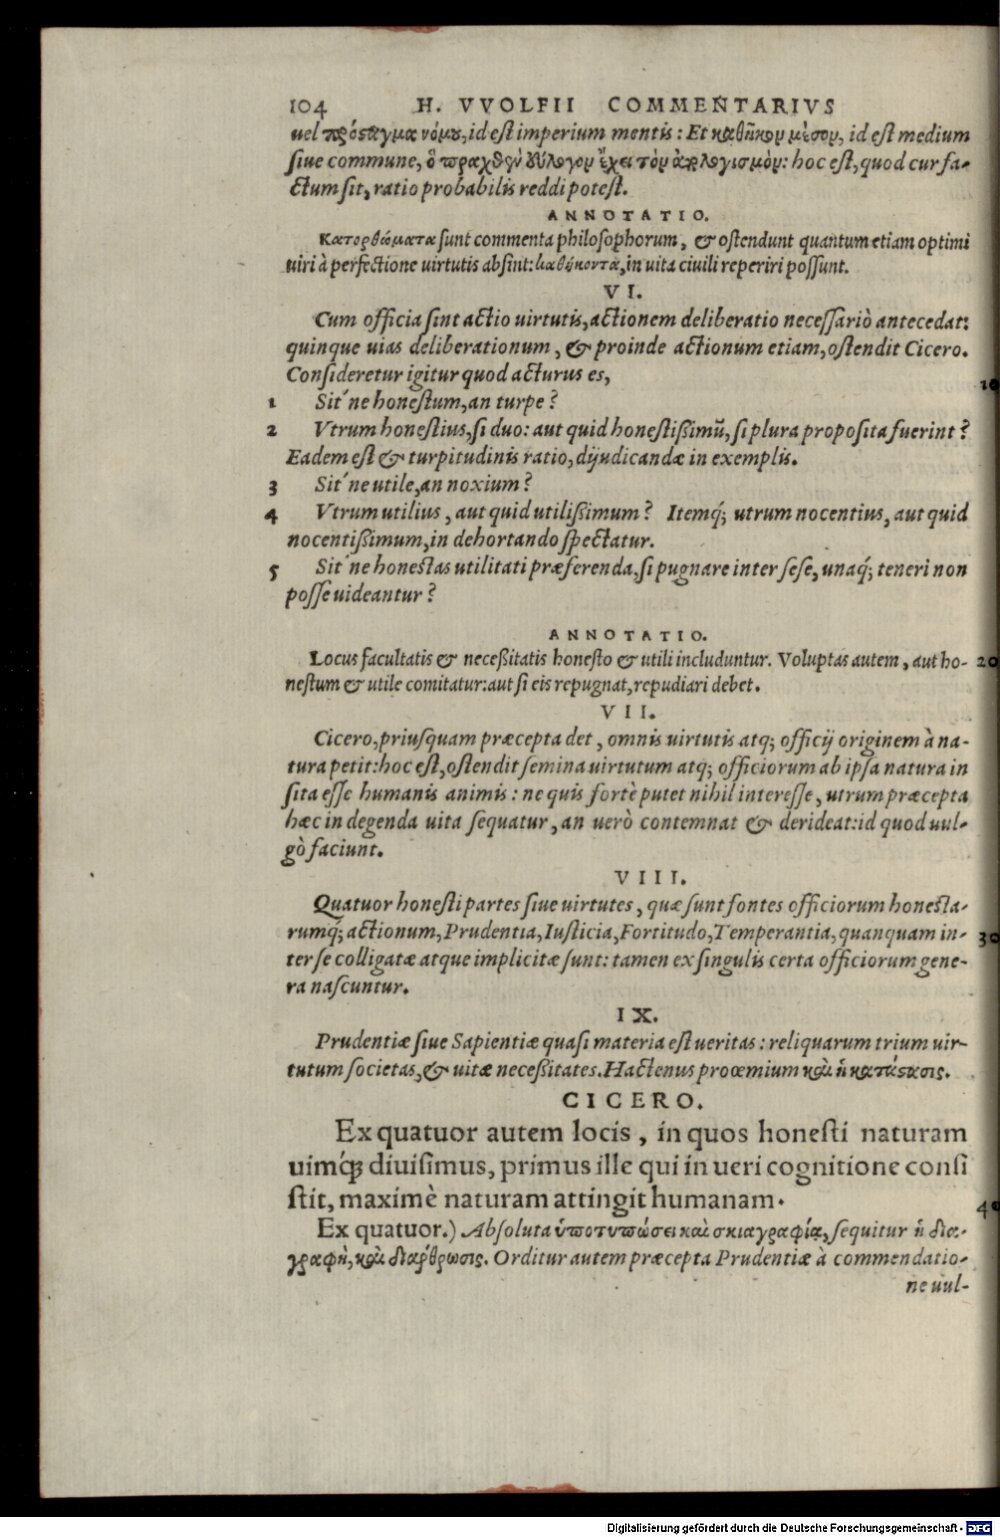 104 H. VVOLFII COMMENTARIVS
uel πρόσταγμα νόμου, id est imperium mentis: Et καθῆκον μέσον, id est medium
siue commune, ὃ πραχθὲν εὔλογον ἔχει τὸν ἀπολογισμόν: hoc est, quod cur fa-
ctum sit, ratio probabilis reddi potest.
ANNOTATIO.
Κατορθώματα sunt commenta philosophorum, & ostendunt quantum etiam optimi
uiri à perfectione uirtutis absint: καθήκοντα, in uita ciuili reperiri possunt.
VI.
Cum officia sint actio uirtutis, actionem deliberatio necessariò antecedat:
quinque uias deliberationum, & proinde actionum etiam, ostendit Cicero.
Consideretur igitur quod acturus es, 10
1 Sit'ne honestum, an turpe?
2 Vtrum honestius, si duo: aut quid honestißimũ, si plura proposita fuerint?
Eadem est & turpitudinis ratio, dijudicandæ in exemplis.
3 Sit'ne utile, an noxium?
4 Vtrum utilius, aut quid utilißimum? Itemq́; utrum nocentius, aut quid
nocentißimum, in dehortando spectatur.
5 Sit'ne honestas utilitati præferenda, si pugnare inter sese, unaq́; teneri non
posse uideantur?
ANNOTATIO.
Locus facultatis & neceßitatis honesto & utili includuntur. Voluptas autem, aut ho- 20
nestum & utile comitatur: aut si eis repugnat, repudiari debet.
VII.
Cicero, priusquam præcepta det, omnis uirtutis atq; officij originem à na-
tura petit: hoc est, ostendit semina uirtutum atq; officiorum ab ipsa natura in
sita esse humanis animis: ne quis fortè putet nihil interesse, utrum præcepta
hæc in degenda uita sequatur, an uerò contemnat & derideat: id quod uul-
gò faciunt.
VIII.
Quatuor honesti partes siue uirtutes, quæ sunt fontes officiorum honesta-
rumq́; actionum, Prudentia, Iusticia, Fortitudo, Temperantia, quanquam in- 30
ter se colligatæ atque implicitæ sunt: tamen ex singulis certa officiorum gene-
ra nascuntur.
IX.
Prudentiæ siue Sapientiæ quasi materia est ueritas: reliquarum trium uir-
tutum societas, & uitæ neceßitates. Hactenus proœmium καὶ ἡ κατάστασις.
CICERO.
Ex quatuor autem locis, in quos honesti naturam
uimq́; diuisimus, primus ille qui in ueri cognitione consi
stit, maximè naturam attingit humanam. 40
Ex quatuor.) Absoluta ὑποτυπώσει καὶ σκιαγραφίᾳ, sequitur ἡ δια-
γραφὴ, καὶ διάρθρωσις. Orditur autem præcepta Prudentiæ à commendatio-
ne uul-
Digitalisierung gefördert durch die Deutsche Forschungsgemeinschaft - DFG